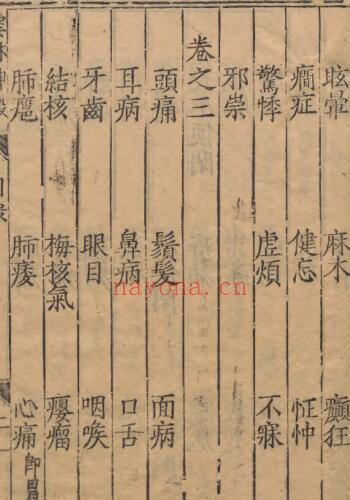 眩暈 麻木 癲狂
癇症 健忘 怔忡
驚悸 虛煩 不寐
邪祟
卷之三
頭痛 鬚髮 面病
耳病 鼻病 口舌
牙齒 眼目 咽喉
結核 梅核氣 癭瘤
肺癰 肺痿 心痛 即胃
雲林神彀 目錄
nayona.cn